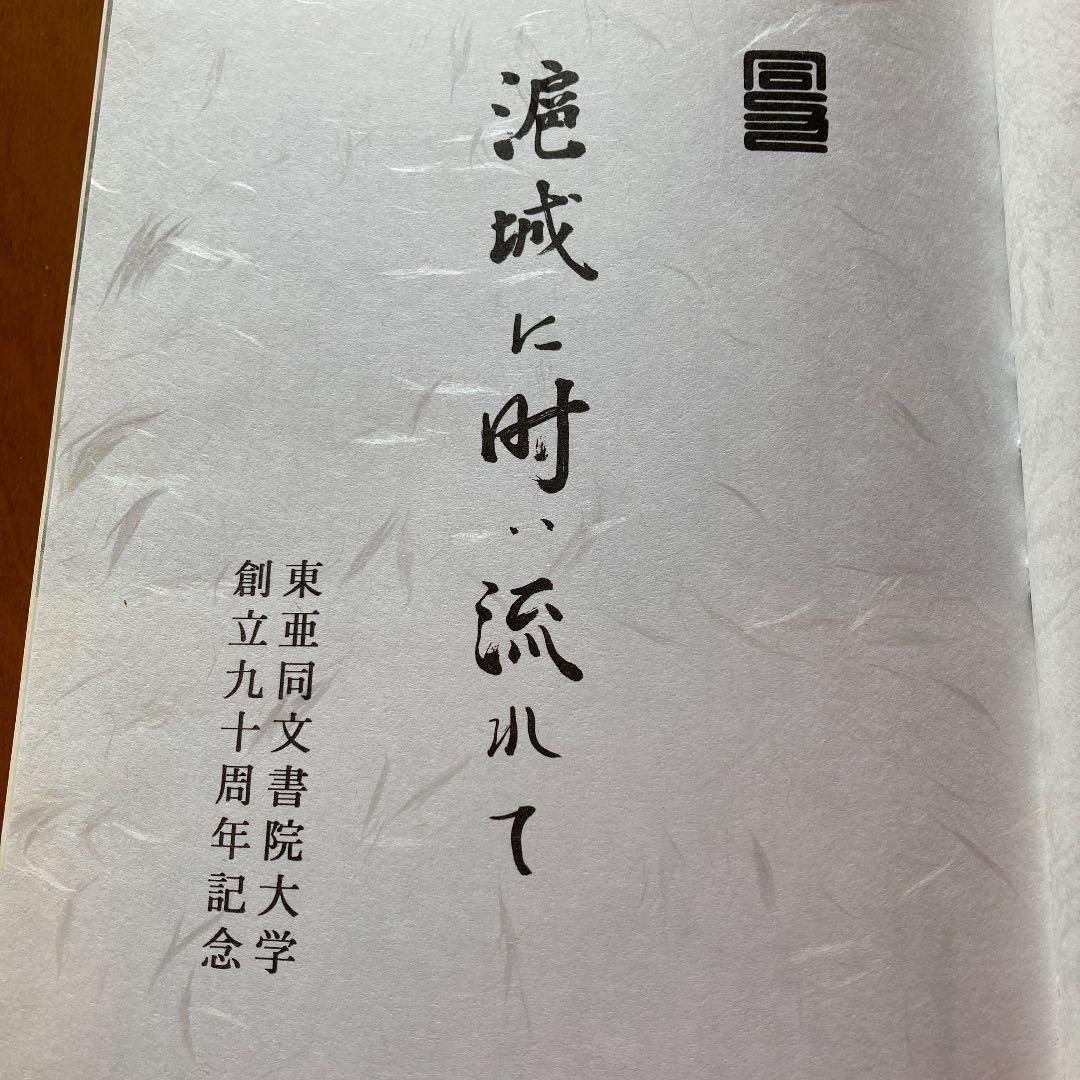 滬城に时は流れて
東亜同文書院大学
創立九十周年記念